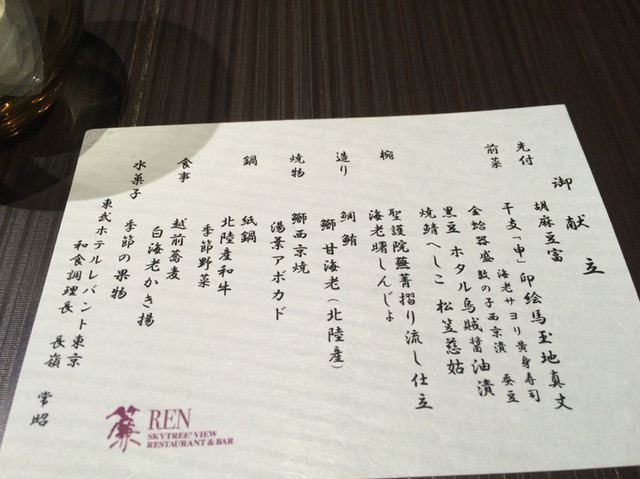 御献立
先付 胡麻豆富
前菜 干支「申」印絵馬玉地真丈
海老サヨリ黄身寿司
金蛤器盛数の子西京漬 蚕豆
黒豆 ホタル烏賊醤油漬
焼鯖へしこ 松笠慈姑
椀 聖護院蕪菁摺り流し仕立
海老曙しんじょ
造り 鯛 鮪
鰤 甘海老(北陸産)
焼物 鰤西京焼
湯葉アボカド
鍋 紙鍋
北陸産和牛
季節野菜
食事 越前蕎麦
白海老かき揚
水菓子 季節の果物
東武ホテルレバント東京
和食調理長 長嶺
簾 REN
SKYTREE® VIEW
RESTAURANT & BAR